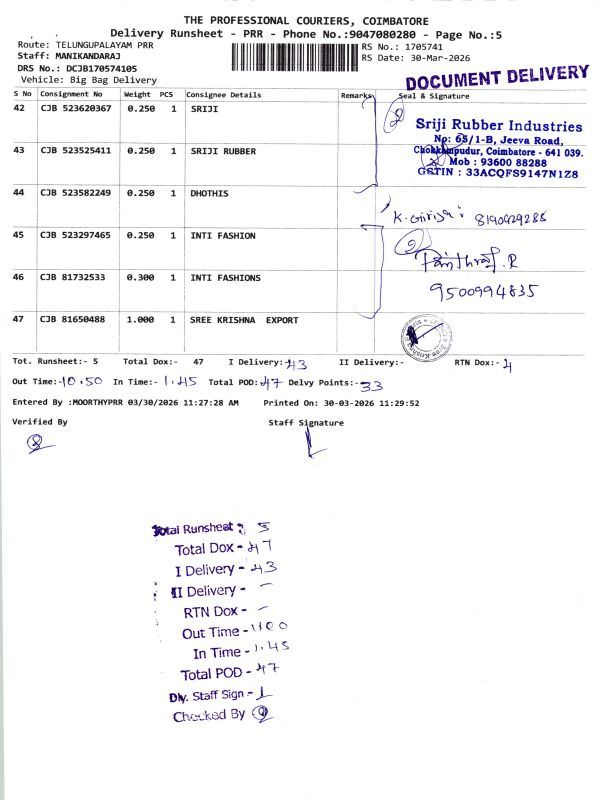 THE PROFESSIONAL COURIERS, COIMBATORE
Delivery Runsheet - PRR - Phone No.:9047080280 - Page No.:5
Route: TELUNGUPALAYAM PRR
Staff: MANIKANDARAJ
DRS No.: DCJB170574105
Vehicle: Big Bag Delivery
RS No.: 1705741
RS Date: 30-Mar-2026
DOCUMENT DELIVERY
S No Consignment No Weight PCS Consignee Details Remarks Seal & Signature
42 CJB 523620367 0.250 1 SRIJI
Sriji Rubber Industries
No: 65/1-B, Jeeva Road,
Chokkampudur, Coimbatore - 641 039.
Mob : 93600 88288
GSTIN : 33ACQFS9147N1Z8
43 CJB 523525411 0.250 1 SRIJI RUBBER
44 CJB 523582249 0.250 1 DHOTHIS
K. Girija : 8190929286
45 CJB 523297465 0.250 1 INTI FASHION
46 CJB 81732533 0.300 1 INTI FASHIONS
9500994835
47 CJB 81650488 1.000 1 SREE KRISHNA EXPORT
Tot. Runsheet:- 5 Total Dox:- 47 I Delivery:- 43 II Delivery:- RTN Dox:- 4
Out Time:- 10.50 In Time:- 1.45 Total POD:- 47 Delvy Points:- 33
Entered By :MOORTHYPRR 03/30/2026 11:27:28 AM Printed On: 30-03-2026 11:29:52
Verified By Staff Signature
Total Runsheet : 5
Total Dox - 47
I Delivery - 43
II Delivery - –
RTN Dox - –
Out Time - 1100
In Time - 1.45
Total POD - 47
Dly. Staff Sign -
Checked By